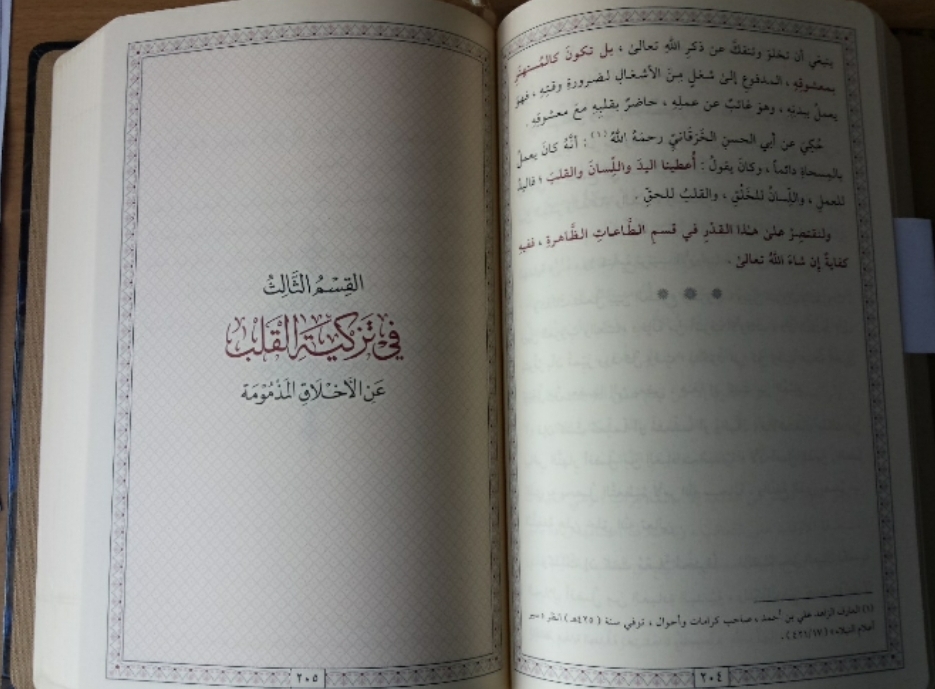 ينبغي أن تخلوَ وتنفكَّ عن ذكرِ اللهِ تعالىٰ ، بل تكونَ كالمُستهتَرِ
بمعشوقِهِ ، المدفوعِ إلىٰ شغلٍ مِنَ الأشغالِ لضرورةِ وقتِهِ ، فهوَ
يعملُ ببدنِهِ ، وهوَ غائبٌ عن عملِهِ ، حاضرٌ بقلبِهِ معَ معشوقِهِ .
حُكِيَ عن أبي الحسنِ الخَرَقانيِّ رحمَهُ اللهُ (١) : أنَّهُ كانَ يعملُ
بالمِسحاةِ دائماً ، وكانَ يقولُ : أُعطينا اليدَ واللِّسانَ والقلبَ ؛ فاليدُ
للعملِ ، واللِّسانُ للخَلْقِ ، والقلبُ للحقِّ .
ولنقتصِرْ علىٰ هـٰذا القدْرِ في قسمِ الطَّاعاتِ الظَّاهرةِ ، ففيهِ
كفايةٌ إن شاءَ اللهُ تعالىٰ .
(١) العارف الزاهد علي بن أحمد ، صاحب كرامات وأحوال ، توفي سنة ( ٤٢٥هـ ) انظر « سير
أعلام النبلاء » ( ٤٢١/١٧ ) .
٢٠٤
القِسْمُ الثَّالِثُ
في تَزكيَةِ القَلبِ
عَنِ الأَخْلَاقِ المَذْمُومَة
٢٠٥